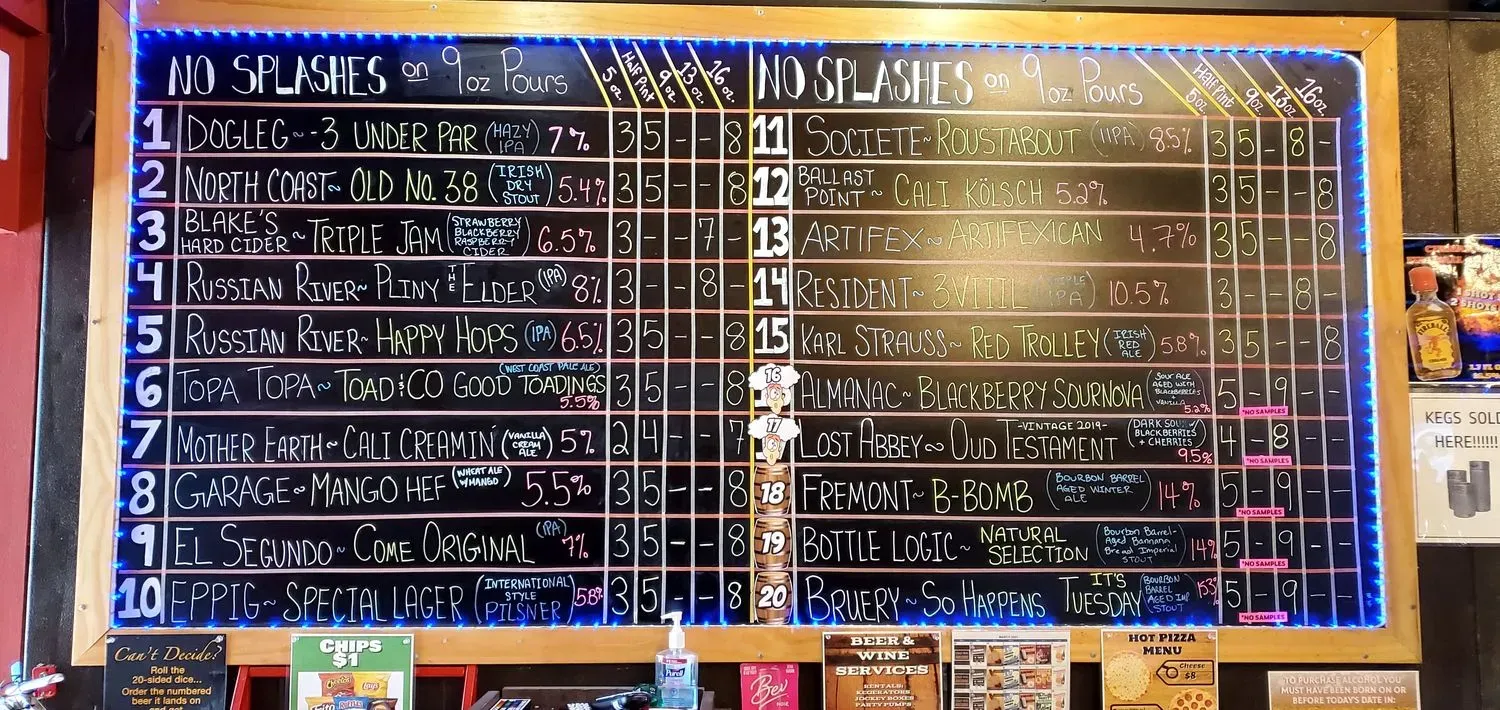 NO SPLASHES on 9oz Pours 5 oz. Half Pint 9 oz. 13 oz. 16 oz.
1 DOGLEG~ -3 UNDER PAR (HAZY IPA) 7% 3 5 - - 8
2 NORTH COAST~ OLD NO. 38 (IRISH DRY STOUT) 5.4% 3 5 - - 8
3 BLAKE'S HARD CIDER~ TRIPLE JAM (STRAWBERRY BLACKBERRY RASPBERRY CIDER) 6.5% 3 - - 7 -
4 RUSSIAN RIVER~ PLINY THE ELDER (IPA) 8% 3 - - 8 -
5 RUSSIAN RIVER~ HAPPY HOPS (IPA) 6.5% 3 5 - - 8
6 TOPA TOPA~ TOAD & CO GOOD TOADINGS (WEST COAST PALE ALE) 5.5% 3 5 - - 8
7 MOTHER EARTH~ CALI CREAMIN' (VANILLA CREAM ALE) 5% 2 4 - - 7
8 GARAGE~ MANGO HEF (WHEAT ALE W/ MANGO) 5.5% 3 5 - - 8
9 EL SEGUNDO~ COME ORIGINAL (IPA) 7% 3 5 - - 8
10 EPPIG~ SPECIAL LAGER (INTERNATIONAL STYLE PILSNER) 5.8% 3 5 - - 8
NO SPLASHES on 9oz Pours 5 oz. Half Pint 9oz. 13oz. 16oz.
11 SOCIETE~ ROUSTABOUT (IIPA) 8.5% 3 5 - 8 -
12 BALLAST POINT~ CALI KÖLSCH 5.2% 3 5 - - 8
13 ARTIFEX~ ARTIFEXICAN 4.7% 3 5 - - 8
14 RESIDENT~ 3VIIIL (TRIPLE IPA) 10.5% 3 - - 8 -
15 KARL STRAUSS~ RED TROLLEY (IRISH RED ALE) 5.8% 3 5 - - 8
16 ALMANAC~ BLACKBERRY SOURNOVA (SOUR ALE AGED WITH BLACKBERRIES + VANILLA) 5.2% 5 - 9 - -
*NO SAMPLES
17 LOST ABBEY~ OUD TESTAMENT -VINTAGE 2019- (DARK SOUR w/ BLACKBERRIES + CHERRIES) 9.5% 4 - 8 - -
*NO SAMPLES
18 FREMONT~ B-BOMB (BOURBON BARREL AGED WINTER ALE) 14% 5 - 9 - -
*NO SAMPLES
19 BOTTLE LOGIC~ NATURAL SELECTION (Bourbon Barrel-Aged Bannana Bread Imperial STOUT) 14% 5 - 9 - -
*NO SAMPLES
20 BRUERY~ SO HAPPENS IT'S TUESDAY (BOURBON BARREL AGED IMP STOUT) 5 - 9 - -
*NO SAMPLES
FIREBALL
KEGS SOLD
HERE!!!!!!
Can't Decide?
Roll the
20-sided dice...
Order the numbered
beer it lands on
CHIPS
$1
Cheetos Lay's
Fritos RUFFLES
Purell
Bev
BEER &
WINE
SERVICES
RENTALS:
KEGERATORS
JOCKEY BOXES
PARTY PUMPS
HOT PIZZA
MENU
Cheese
$8
TO PURCHASE ALCOHOL YOU
MUST HAVE BEEN BORN ON OR
BEFORE TODAY'S DATE IN: